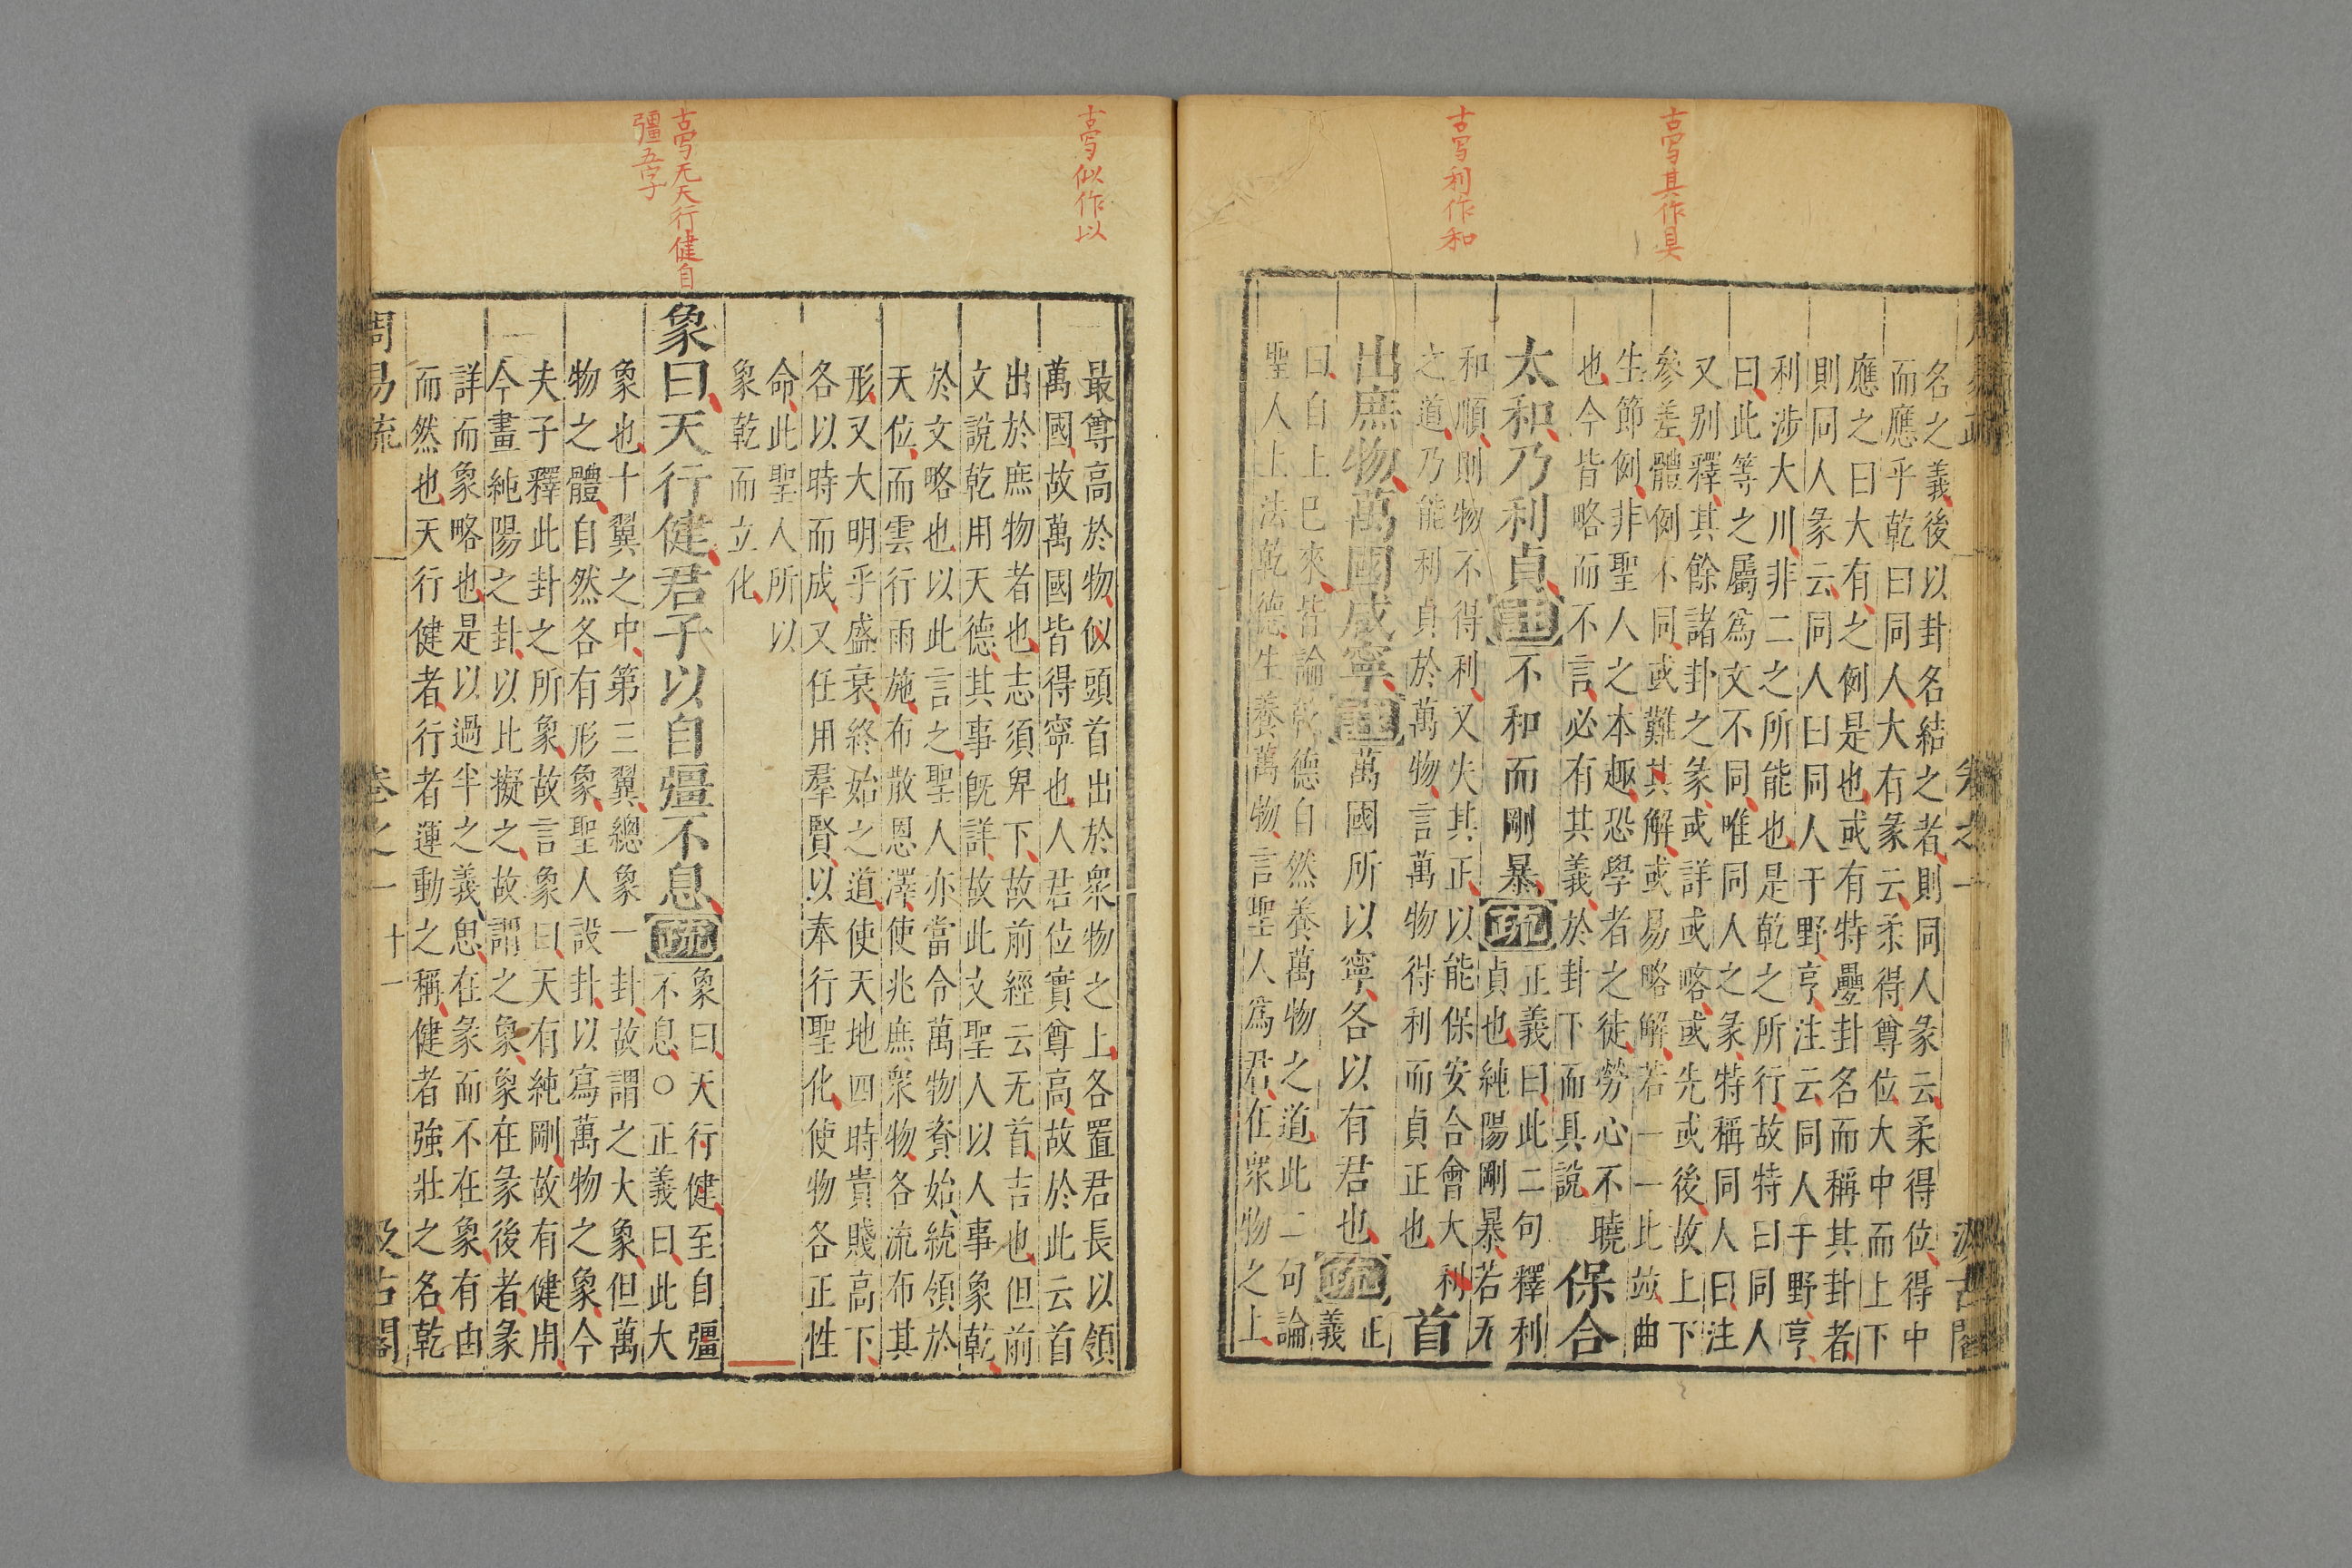 古写其作具
古写利作和
周易疏 卷之一 汲古閣
名之義後以卦名結之者則同人彖云柔得位得中
而應乎乾曰同人大有彖云柔得尊位大中而上下
應之曰大有之例是也或有特疊卦名而稱其卦者
則同人彖云同人曰同人于野亨注云同人于野亨
利涉大川非二之所能也是乾之所行故特曰同人
曰此等之屬爲文不同唯同人之彖特稱同人曰注
又別釋其餘諸卦之彖或詳或略或先或後故上下
參差體例不同或難其解或易略解若一一比並曲
生節例非聖人之本趣恐學者之徒勞心不曉
也今皆略而不言必有其義於卦下而具說
保合
太和乃利貞
註
不和而剛暴
疏
正義曰此二句釋利
貞也純陽剛暴若无
和順則物不得利又失其正以能保安合會大利
之道乃能利貞於萬物言萬物得利而貞正也
首
出庶物萬國咸寧
註
萬國所以寧各以有君也
疏
正
義
曰自上已來皆論乾德自然養萬物之道此二句論
聖人上法乾德生養萬物言聖人爲君在眾物之上
古写似作以
古写无天行健自
彊五字
最尊高於物似頭首出於眾物之上各置君長以領
萬國故萬國皆得寧也人君位實尊高故於此云首
出於庶物者也志須卑下故前經云无首吉也但前
文說乾用天德其事既詳故此文聖人以人事象乾
於文略也以此言之聖人亦當令萬物資始統領於
天位而雲行雨施布散恩澤使兆庶眾物各流布其
形又大明乎盛衰終始之道使天地四時貴賤高下
各以時而成又任用羣賢以奉行聖化使物各正性
命此聖人所以
象乾而立化
象曰天行健君子以自彊不息
疏
象曰天行健至自彊
不息○正義曰此大
象也十翼之中第三翼總象一卦故謂之大象但萬
物之體自然各有形象聖人設卦以寫萬物之象今
夫子釋此卦之所象故言象曰天有純剛故有健用
今畫純陽之卦以比擬之故謂之象象在彖後者彖
詳而象略也是以過半之義思在彖而不在象有由
而然也天行健者行者運動之稱健者強壯之名乾
周易疏 卷之一 十一 汲古閣